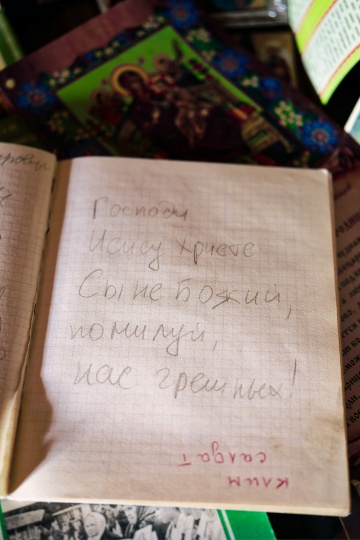 Господи
Исису христе
Сыне Божий,
помилуй,
нас грешных!
клим
салдат